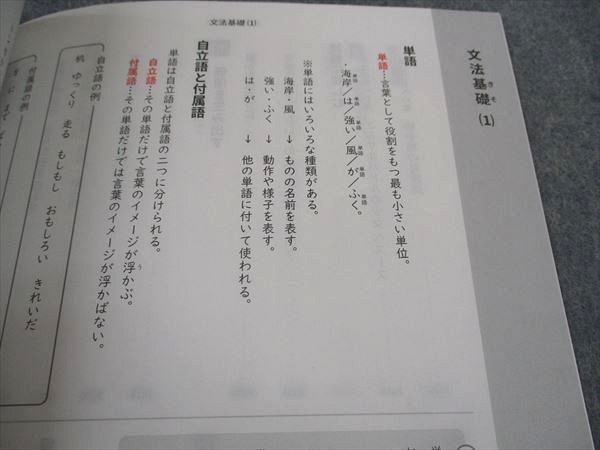 文法基礎(1)
文法基礎(1)
きそ
単語
単語…言葉として役割をもつ最も小さい単位。
単語 単語 単語 単語 単語 単語
・海岸／は／強い／風／が／ふく。
※単語にはいろいろな種類がある。
海岸・風 → ものの名前を表す。
強い・ふく → 動作や様子を表す。
は・が → 他の単語に付いて使われる。
自立語と付属語
単語は自立語と付属語の二つに分けられる。
自立語…その単語だけで言葉のイメージが浮かぶ。
う
付属語…その単語だけでは言葉のイメージが浮かばない。
自立語の例
机 ゆっくり 走る もしもし おもしろい きれいだ
付属語の例